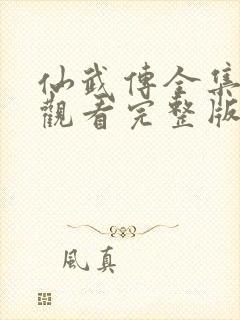 仙武傳全集
觀看完整版
風真